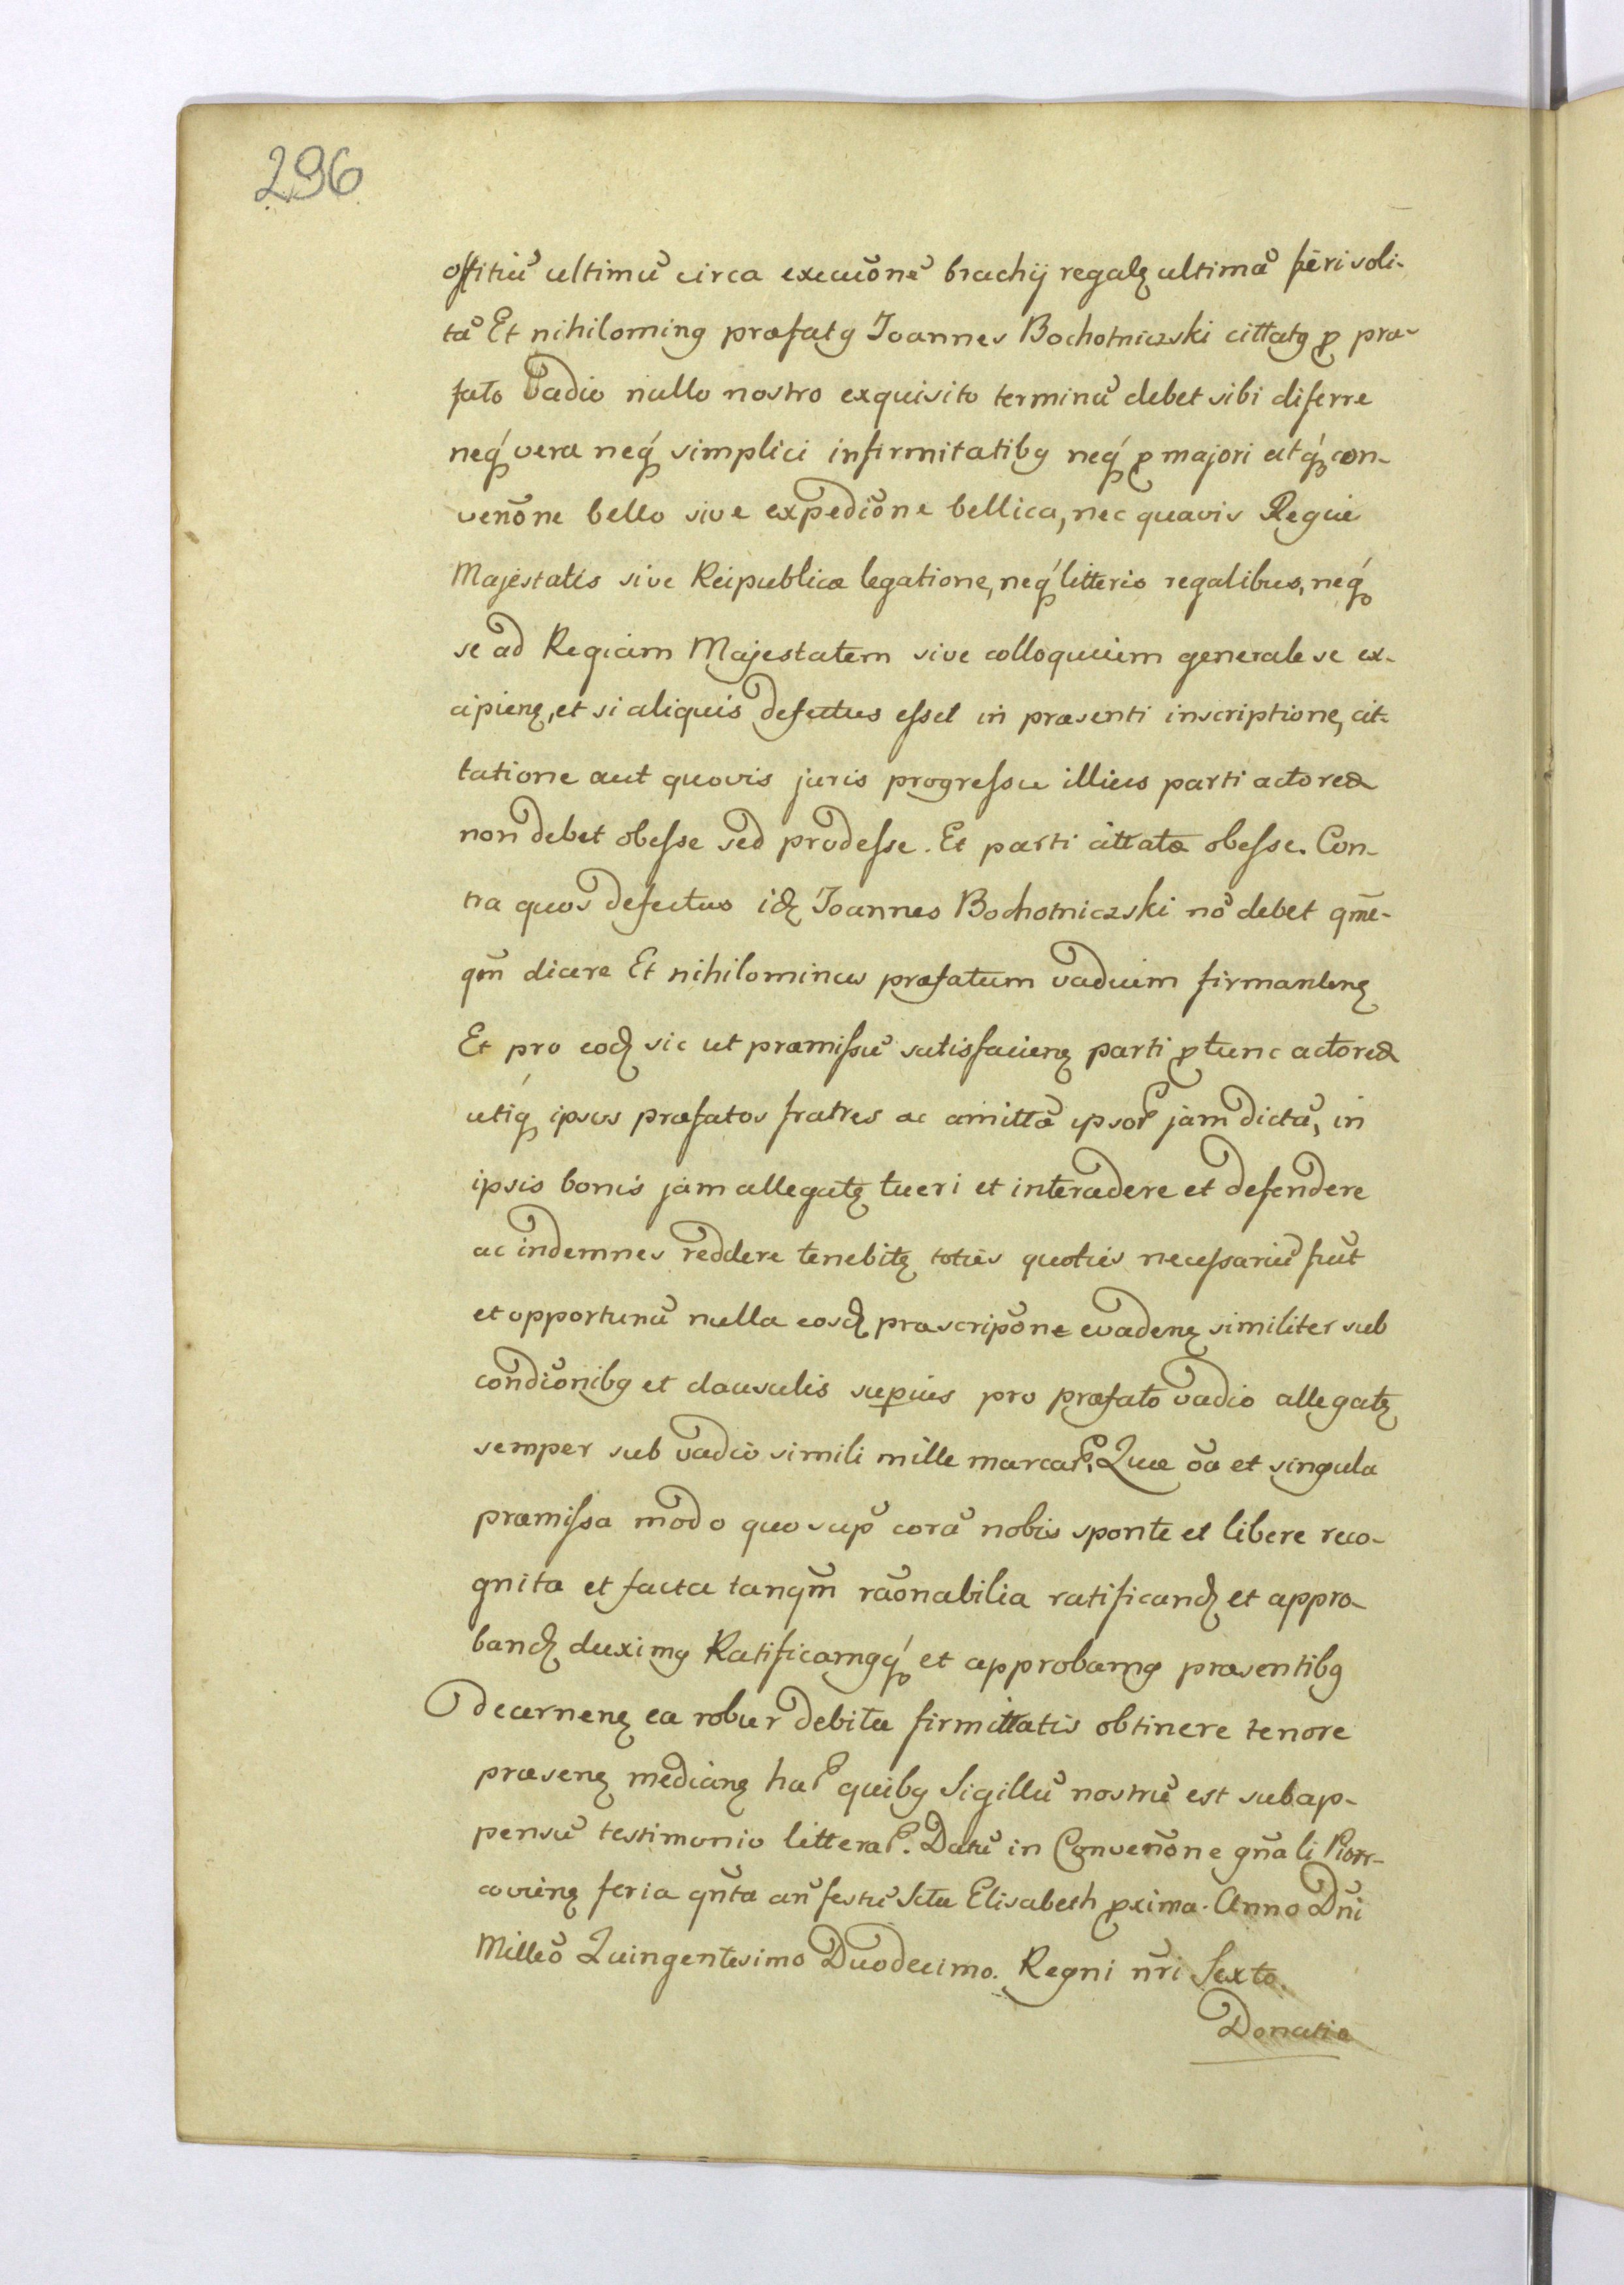 296
offitiū ultimū circa execuōnē brachij regalꝫ ultimā fieri soli-
tā Et nihilominꝰ præfatꝰ Joannes Bochotniczski cittatꝰ ꝓ præ-
fato vadio nullo nostro exquisito terminū debet sibi diferre
neqꝫ vera neqꝫ simplici infirmitatibꝰ neqꝫ ꝓ majori atqꝫ con-
venōne bello sive expediōne bellica, nec quavis Regiæ
Majestatis sive Reipublicæ legatione, neqꝫ litteris regalibus, neqꝫ
se ad Regiam Majestatem sive colloquium generale se ex-
cipienꝫ, et si aliquis defectus esset in præsenti inscriptione, cit-
tatione aut quovis juris progressu illius parti actoreæ
non debet obesse sed prodesse. Et parti cittatæ obesse. Con-
tra quos defectus idꝫ Joannes Bochotniczski nō debet qm̄e-
qm̄ dicere Et nihilominus præfatum vadium firmantenꝫ
Et pro eodꝫ sic ut præmissū satisfacienꝫ parti ꝓtunc actoreæ
utiqꝫ ipsos præfatos fratres ac amittā ipsoꝝ jam dictā, in
ipsis bonis jam allegatꝫ tueri et intercedere et defendere
ac indemnes reddere tenebitꝫ toties quoties necessariū fuit
et opportunū nulla eosdꝫ præscripōne evadenꝫ similiter sub
condiōnibꝰ et clausulis superius pro præfato vadio allegatꝫ
semper sub vadio simili mille marcaꝝ. Quæ ōa et singula
præmissa modo quo sup̄ corā nobis sponte et libere reco-
gnita et facta tanqm̄ raōnabilia ratificandꝫ et appro-
bandꝫ duximꝰ Ratificamꝰqꝫ et approbamꝰ præsentibꝰ
Decernenꝫ ea robur debitæ firmittatis obtinere tenore
præsenꝫ medianꝫ haꝝ quibꝰ Sigillū nostrū est subap-
pensū testimonio litteraꝝ. Datū in Convenōne gn̄ali Piotr-
covienꝫ feria qn̄ta an̄ festū Sctæ Elisabeth ꝓxima. Anno Dn̄i
Milleō Quingentesimo Duodecimo. Regni nr̄i Sexto.
Donatio